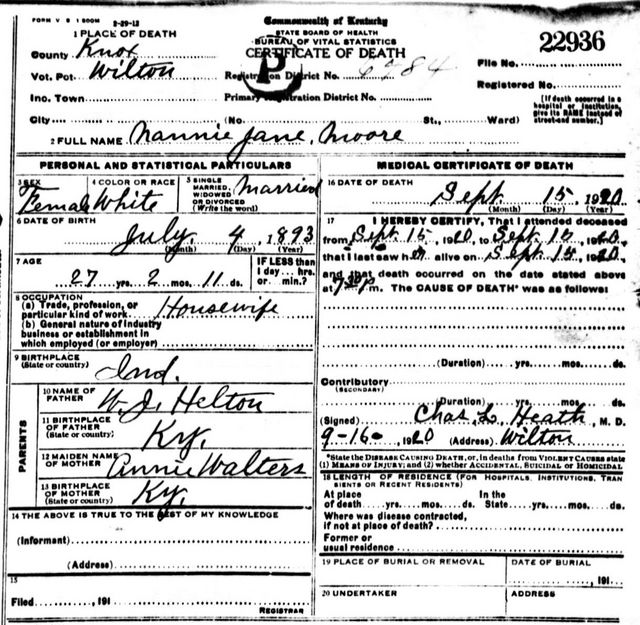 FORM V S 1 500M 2-29-12
Commonwealth of Kentucky
STATE BOARD OF HEALTH
BUREAU OF VITAL STATISTICS
CERTIFICATE OF DEATH
22936
1 PLACE OF DEATH
County Knox
Vot. Pct. Wilton
Inc. Town
City (No. St., Ward)
Registration District No.
Primary Registration District No.
File No.
Registered No.
[If death occurred in a hospital or institution, give its NAME instead of street and number.]
P
2 FULL NAME Nannie Jane Moore
PERSONAL AND STATISTICAL PARTICULARS
3 SEX
Female
4 COLOR OR RACE
White
5 SINGLE MARRIED, WIDOWED OR DIVORCED (Write the word)
Married
6 DATE OF BIRTH
July 4, 1893
(Month) (Day) (Year)
7 AGE
27 yrs. 2 mos. 11 ds.
IF LESS than 1 day... hrs. or min.?
8 OCCUPATION
(a) Trade, profession, or particular kind of work Housewife
(b) General nature of industry
business or establishment in
which employed (or employer)
9 BIRTHPLACE
(State or country)
Ind.
PARENTS
10 NAME OF FATHER
W. J. Helton
11 BIRTHPLACE OF FATHER (State or country)
Ky.
12 MAIDEN NAME OF MOTHER
Annie Walters
13 BIRTHPLACE OF MOTHER (State or country)
Ky.
14 THE ABOVE IS TRUE TO THE BEST OF MY KNOWLEDGE
(Informant)
(Address)
15
Filed , 191
REGISTRAR
MEDICAL CERTIFICATE OF DEATH
16 DATE OF DEATH
Sept. 15 1920
(Month) (Day) (Year)
17 I HEREBY CERTIFY, That I attended deceased
from Sept 15 1920, to Sept. 15, 1920,
that I last saw her alive on Sept. 15, 1920,
and that death occurred on the date stated above
at 7 30 P m. The CAUSE OF DEATH* was as follows:
(Duration) yrs. mos. ds.
Contributory
(SECONDARY)
(Duration) yrs. mos. ds.
(Signed) Chas. L. Heath, M. D.
9-16- 1920 (Address) Wilton
*State the DISEASE CAUSING DEATH, or, in deaths from VIOLENT CAUSES state
(1) MEANS OF INJURY; and (2) whether ACCIDENTAL, SUICIDAL or HOMICIDAL
18 LENGTH OF RESIDENCE (FOR HOSPITALS, INSTITUTIONS, TRAN
SIENTS OR RECENT RESIDENTS)
At place of death yrs. mos. ds. In the State yrs. mos. ds.
Where was disease contracted,
if not at place of death?
Former or
usual residence
19 PLACE OF BURIAL OR REMOVAL
DATE OF BURIAL
, 191
20 UNDERTAKER
ADDRESS